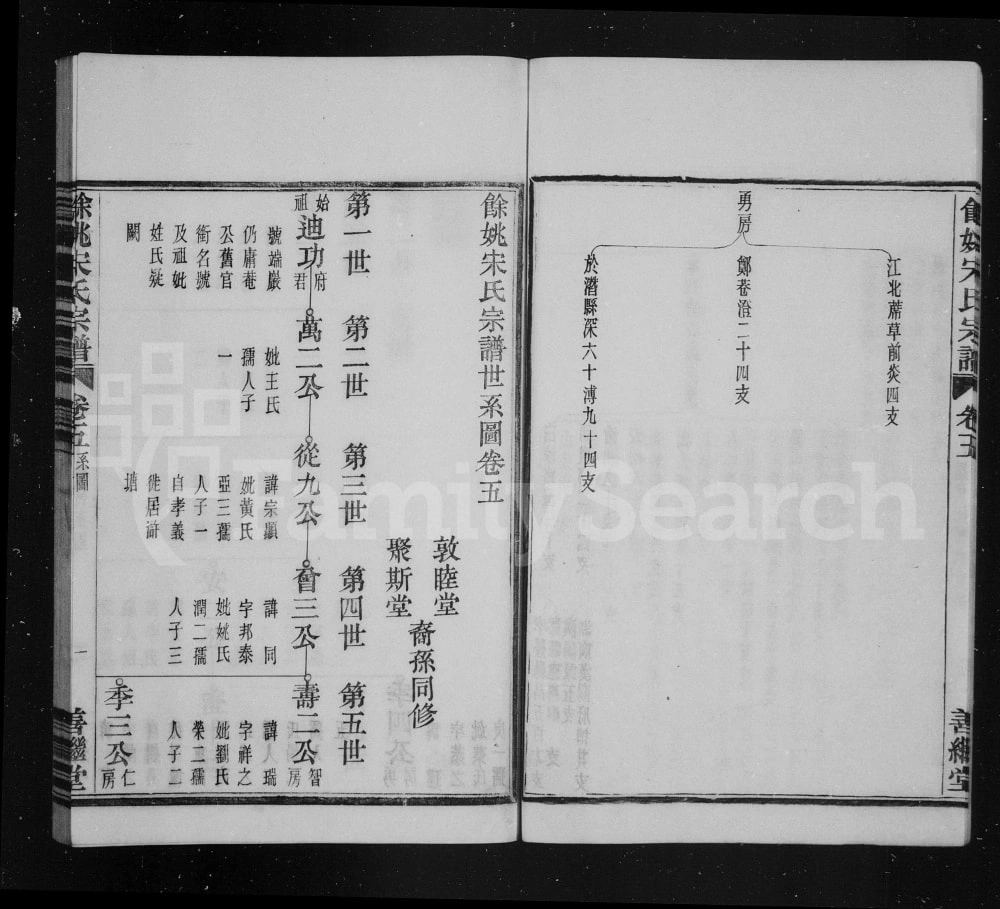 餘姚宋氏宗譜
卷五
善繼堂
勇房
江北蓆草前炎四支
鄭巷澄二十四支
於潛縣深六十溥九十四支
餘姚宋氏宗譜世系圖卷五
敦睦堂
聚斯堂
裔孫同修
第一世
第二世
第三世
第四世
第五世
始祖迪功府君
號端嚴
仍庸菴
公舊官
銜名號
及祖妣
姓氏疑
闕
萬二公
妣王氏
孺人子
一
從九公
諱宗顯
妣黃氏
亞三孺
人子一
自孝義
徙居滸
塘
會三公
諱同
字邦泰
妣姚氏
潤二孺
人子三
壽二公智房
諱人瑞
字祥之
妣劉氏
榮二孺
人子二
季三公仁房
餘姚宋氏宗譜
卷五系圖
一
善繼堂
FamilySearch